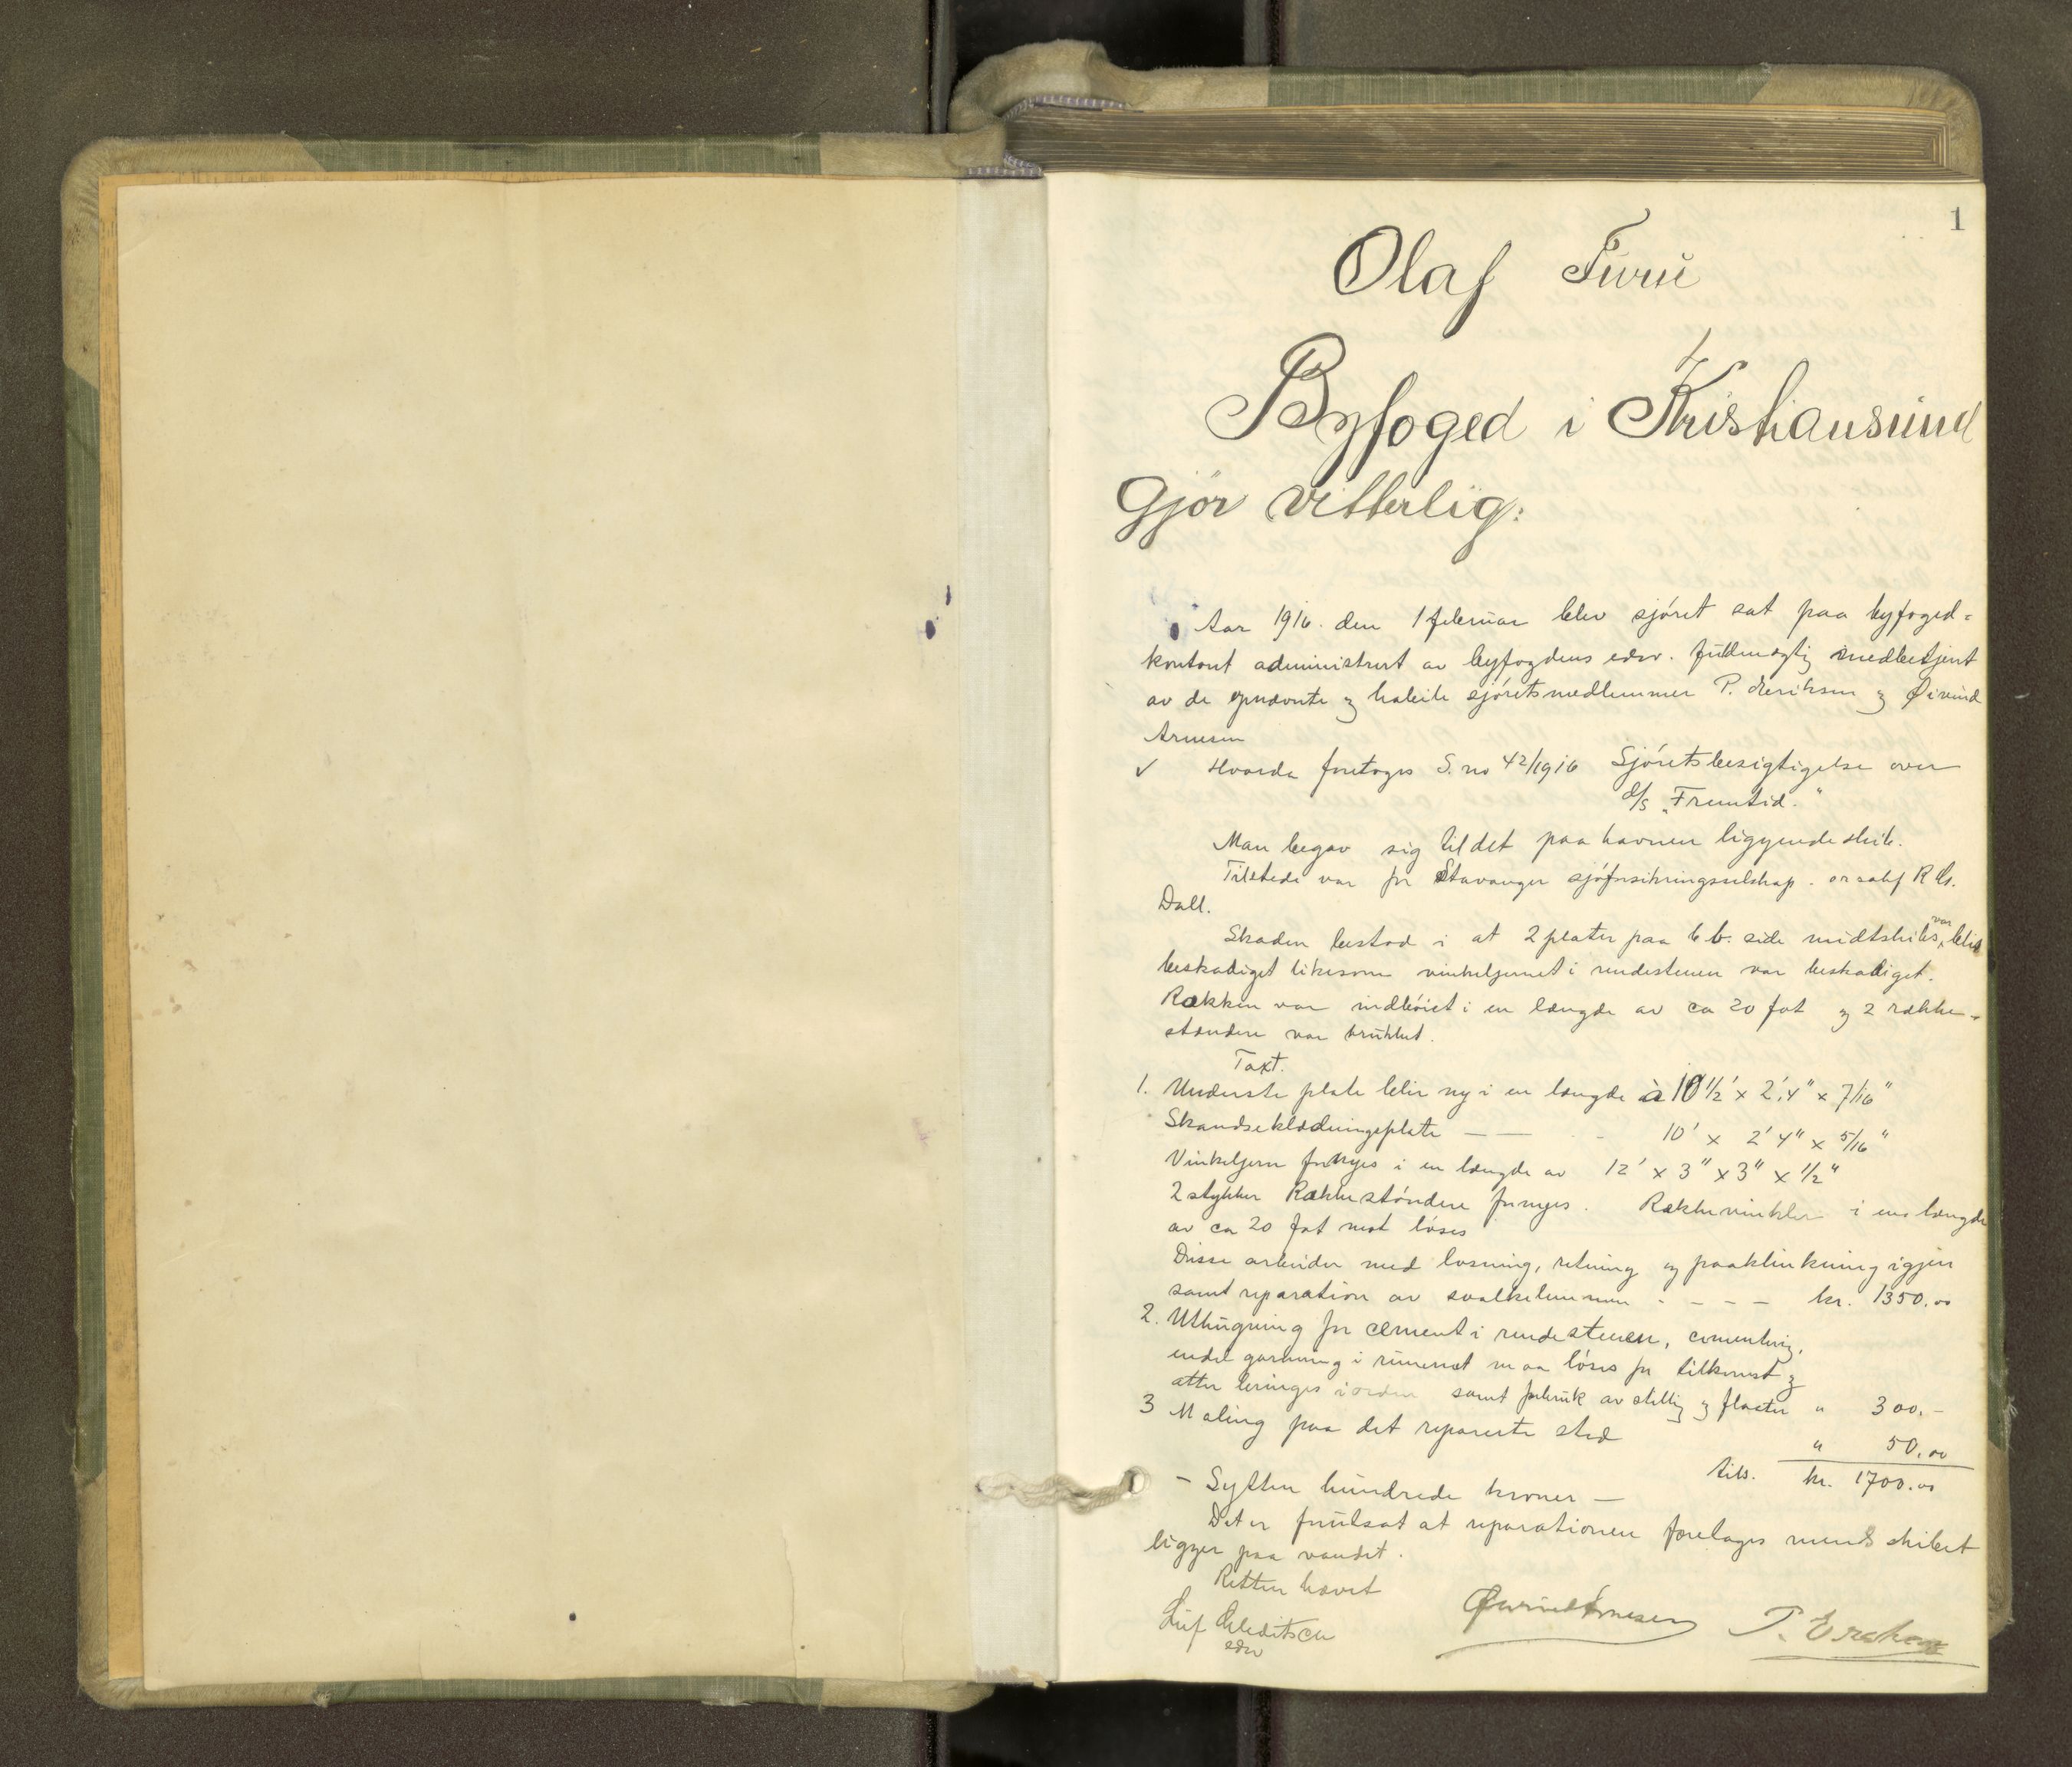 1
Olaf Furu
Byfoged i Kristiansund
Gjör vitterlig:
Aar 1916. den 1 februar blev sjöret sat paa byfoged=
kontoret administrert av byfogdens edsv. fuldmægtig medbetjent
av de opnævnte og habile sjöretsmedlemmer P. Eriksen og Øivind
Arnesen
✓ Hvorda foretoges S. no 42/1916 Sjöretsbesigtigelse over
d/s "Fremtid."
Man begav sig til det paa havnen liggende skib.
Tilstede var for Stavanger sjöforsikringsselskap. or sakf R Chr.
Dall.
Skaden bestod i at 2 plater paa b b. side midtskibs var blit
beskadiget likesom vinkeljernet i rendestenen var beskadiget.
Rækken var indböiet i en længde av ca 20 fot og 2 række-
stændere var brukket.
Taxt.
1. Underste plate blir ny i en længde à 10 1/2' x 2'.4" x 7/16"
Skandseklædningsplate — — - 10' x 2' 4" x 5/16"
Vinkeljern fornyes i en længde av 12' x 3" x 3" x 1/2"
2 stykker Rækkestöndere fornyes. Rækkevinkler i en længde
av ca 20 fot mot löses
Disse arbeider med losning, retning og paaklinkning igjen
samt reparation av svalkelemmen - - - - kr. 1350.00
2. Uthugning for cement i rendestenen, cementering,
endel garnering i rummet maa löses for tilkomst og
atter bringes i orden samt forbruk av stilling og flaater " 300.-
3 Maling paa det reparerte sted " 50.00
tils. kr. 1700.00
- Sytten hundrede kroner —
Det er forutsat at reparationen foretages mens skibet
ligger paa vandet.
Retten hævet
Leif Gleditsch Øivind Arnesen P. Eriksen
edsv